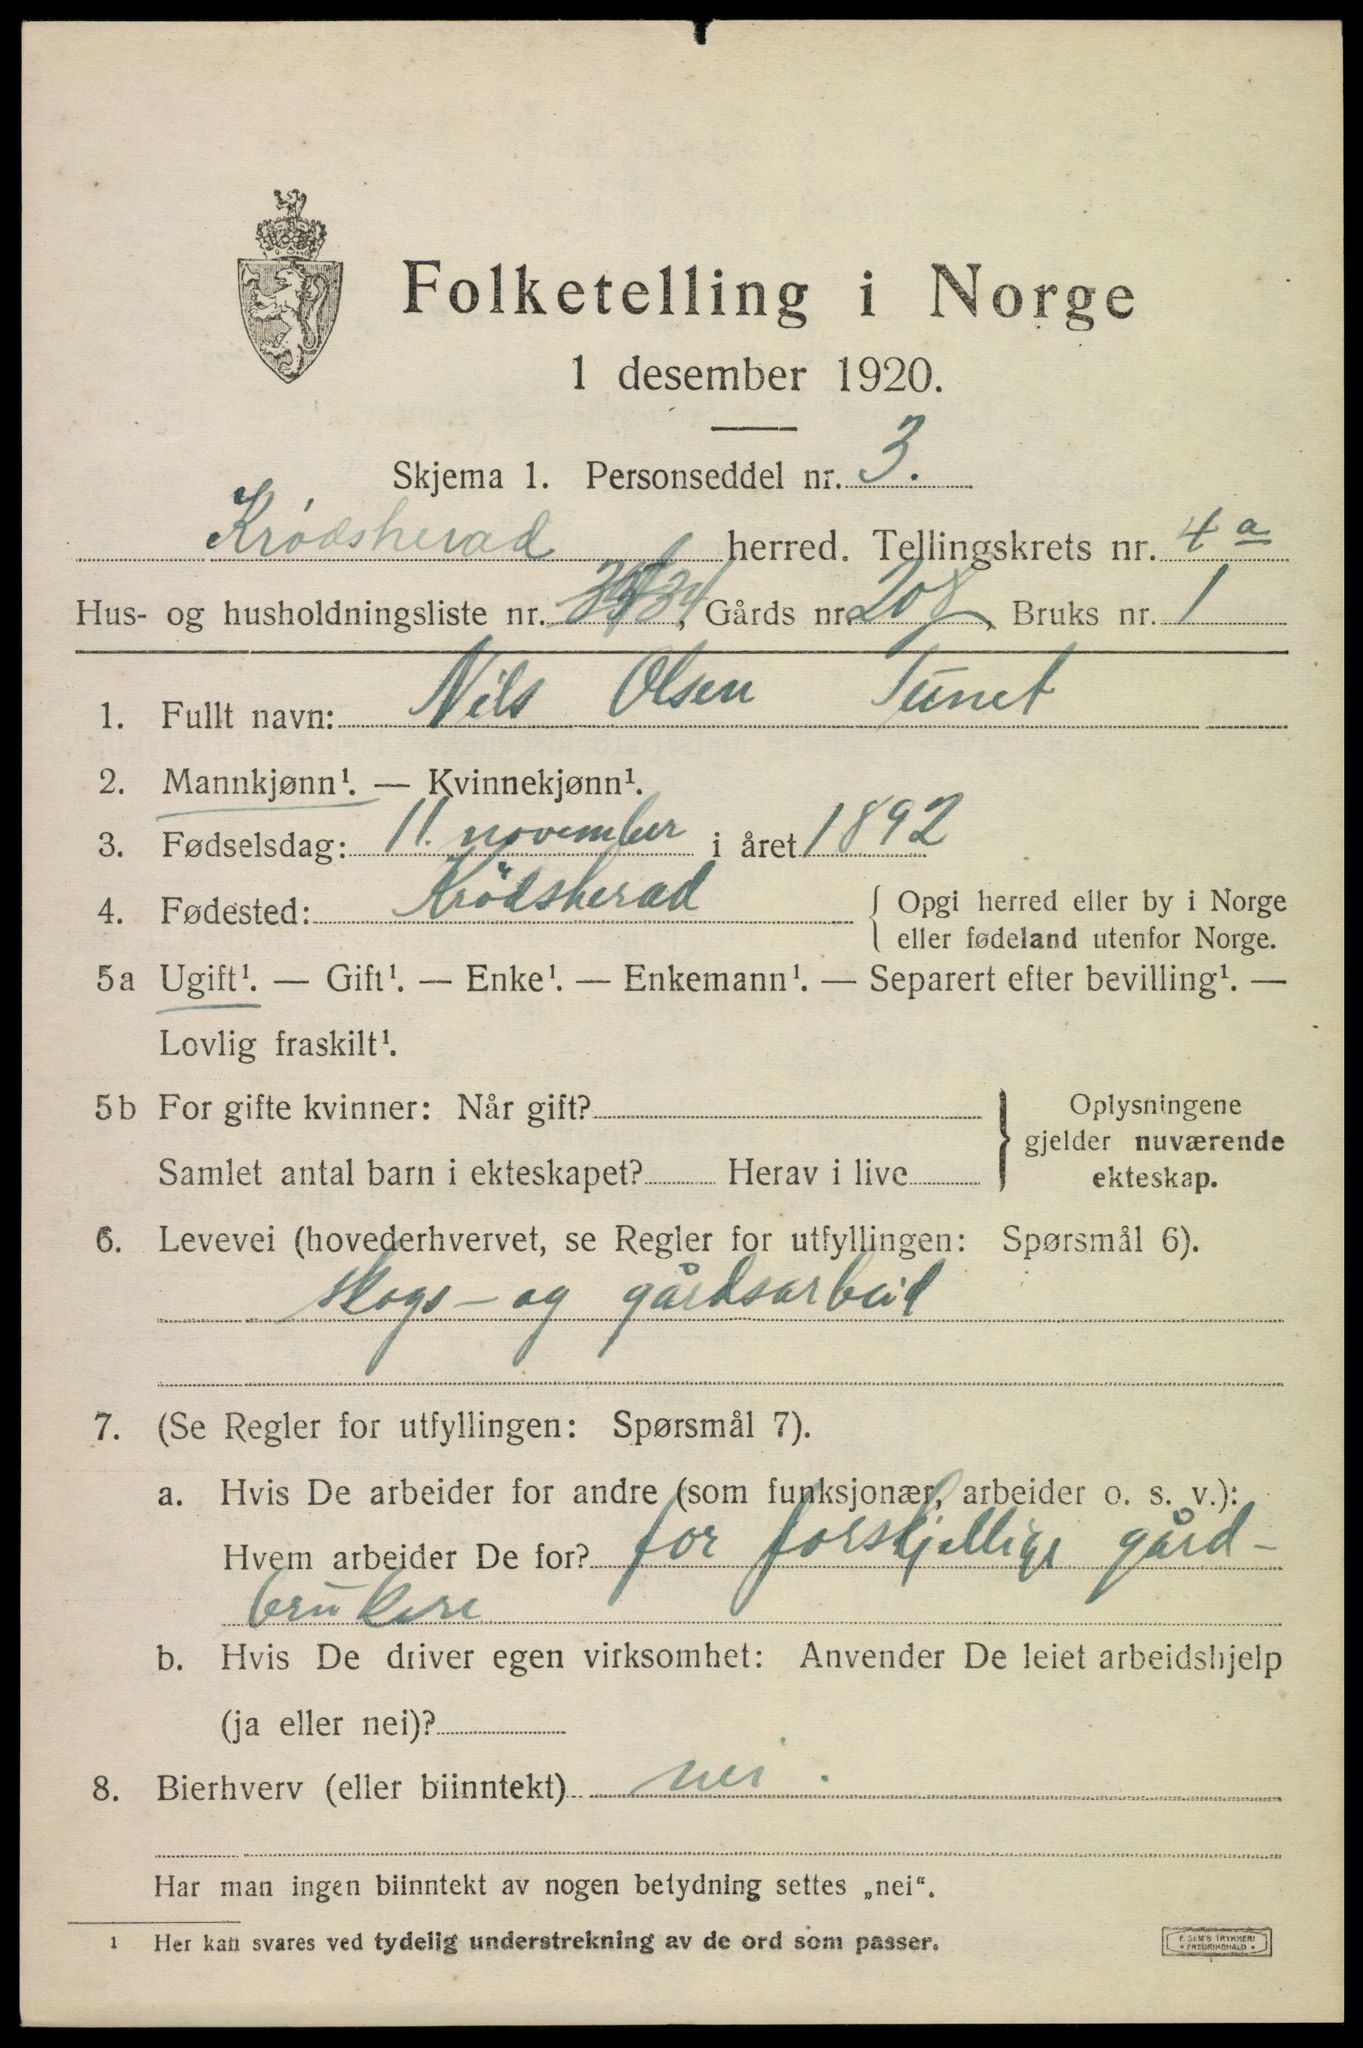 Folketelling i Norge
1 desember 1920.
Skjema 1. Personseddel nr. 3.
Krødsherad herred. Tellingskrets nr. 4 a
Hus- og husholdningsliste nr. 34, Gårds nr. 208, Bruks nr. 1
1. Fullt navn: Nils Olsen Tunet
2. Mannkjønn¹. — Kvinnekjønn¹.
3. Fødselsdag: 11. november i året 1892
4. Fødested: Krødsherad { Opgi herred eller by i Norge
eller fødeland utenfor Norge.
5a Ugift¹. — Gift¹. — Enke¹. — Enkemann¹. — Separert efter bevilling¹. —
Lovlig fraskilt¹.
5b For gifte kvinner: Når gift? } Oplysningene
gjelder nuværende
Samlet antal barn i ekteskapet? Herav i live
ekteskap.
6. Levevei (hovederhvervet, se Regler for utfyllingen: Spørsmål 6).
skogs- og gårdsarbeid
7. (Se Regler for utfyllingen: Spørsmål 7).
a. Hvis De arbeider for andre (som funksjonær, arbeider o. s. v.):
Hvem arbeider De for? for forskjellige gård-
brukere
b. Hvis De driver egen virksomhet: Anvender De leiet arbeidshjelp
(ja eller nei)?
8. Bierhverv (eller biinntekt) nei.
Har man ingen biinntekt av nogen betydning settes „nei“.
1 Her kan svares ved tydelig understrekning av de ord som passer.
E. SEM'S TRYKKERI
• FREDRIKSHALD •